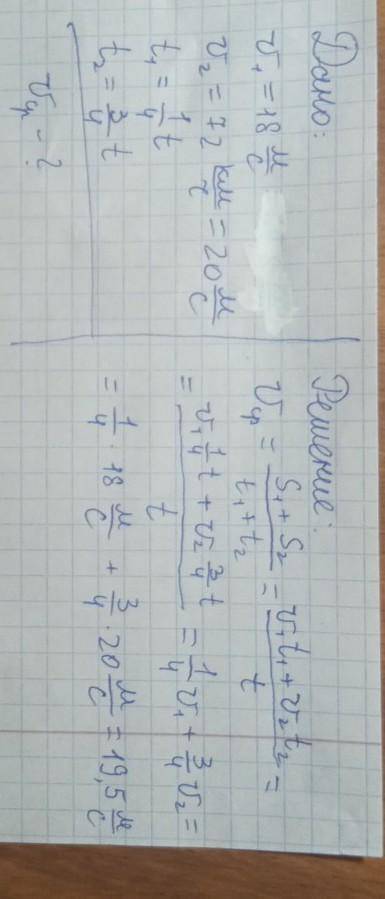 Дано:
v₁ = 18 м/с
v₂ = 72 км/ч = 20 м/с
t₁ = 1/4 t
t₂ = 3/4 t
vср - ?
Решение:
vср = (S₁ + S₂)/(t₁ + t₂) = (v₁t₁ + v₂t₂)/t =
= (v₁ 1/4 t + v₂ 3/4 t)/t = 1/4 v₁ + 3/4 v₂ =
= 1/4 · 18 м/с + 3/4 · 20 м/с = 19,5 м/с